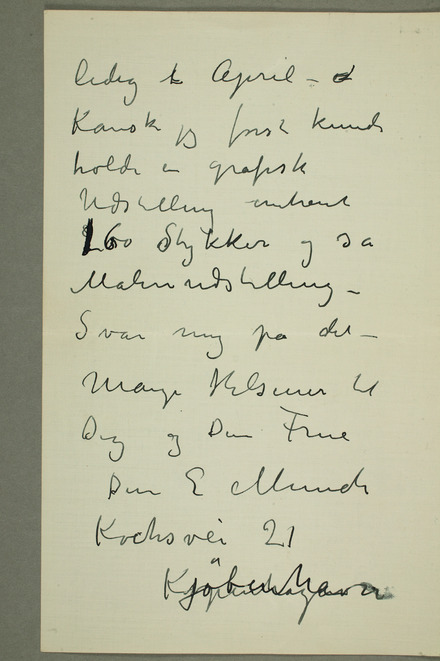 ledig til April –
Kanske jeg først kunde
holde en grafisk
Udstilling omtrent
160 Stykker og så
Maleriudstilling –
Svar mig på det –
Mange Hilsener til
Dig og Din Frue
Din E Munch
Kochsvei 21
Kjöbenhavn